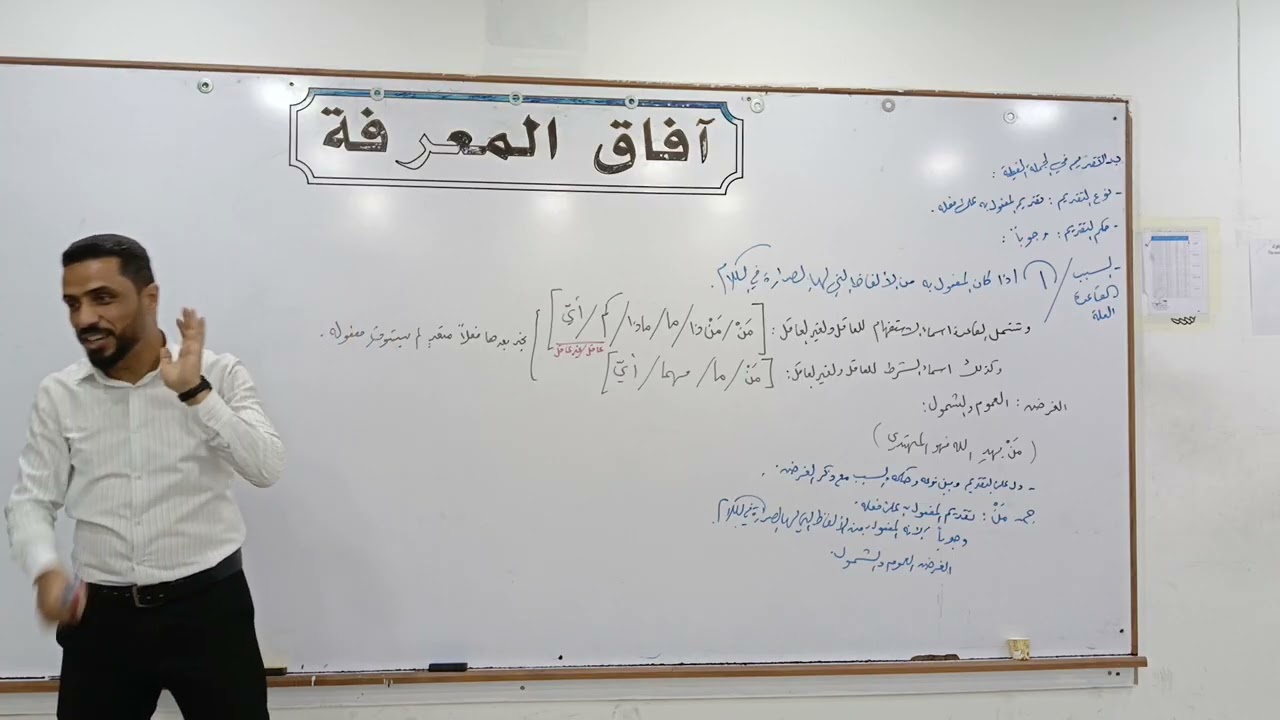 آفاق المعرفة
جد التقديم في الجملة الفعلية :
- نوع التقديم : تقديم المفعول به على فعله .
- حكم التقديم : وجوباً :
- السبب / ١) اذا كان المفعول به من الألفاظ التي لها الصدارة في الكلام .
القاعدة
العلة
وتشمل القاعدة اسماء الاستفهام للعاقل ولغير العاقل : [مَنْ / مَنْ ذا / ما / ماذا / كم / أيّ] نجد بعدها فعلاً متعدٍ لم يستوفِ مفعوله .
عاقل / غير عاقل
وكذلك اسماء الشرط للعاقل ولغير العاقل : [مَنْ / ما / مهما / أيّ]
الغرض : العموم والشمول :
( مَنْ يهدِ الله فهو المهتدي )
- دل على التقديم وبين نوعه وحكمه والسبب مع ذكر الغرض .
جـ/ مَنْ : تقديم المفعول به على فعله
وجوباً لأنه المفعول من الألفاظ التي لها الصدارة في الكلام .
الغرض العموم والشمول .